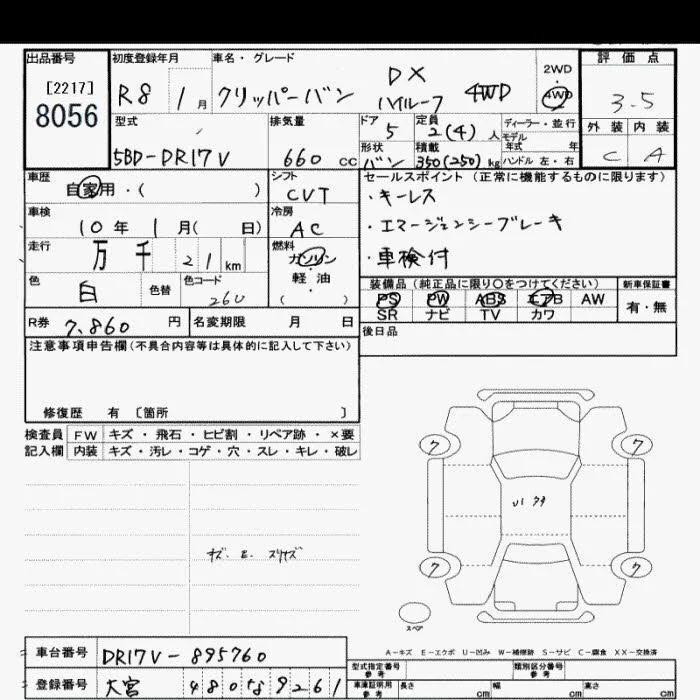 出品番号
[2217]
8056
初度登録年月
R8 1月
車名・グレード
クリッパーバン
DX
ハイルーフ 4WD
2WD
4WD
評価点
3.5
外装 内装
C A
型式
5BD-DR17V
排気量
660 cc
ドア
5
形状
バン
定員
2(4)人
積載
350(250)kg
ディーラー・並行
モデル
年式 年
ハンドル 左・右
車歴
自家用・( )
シフト
CVT
セールスポイント(正常に機能するものに限ります)
・キーレス
・エマージェンシーブレーキ
・車検付
車検
10年 1月( 日)
冷房
AC
走行
万 千 21km
燃料
ガソリン
軽・油
( )
色
白
色替
色コード
26U
装備品(純正品に限り○をつけてください)
新車保証書
PS PW ABS エアB AW
SR ナビ TV カワ
有・無
R券 7,860円
名変期限 月 日
後日品
注意事項申告欄(不具合内容等は具体的に記入して下さい)
修復歴 有〔箇所 〕
検査員
記入欄
FW キズ・飛石・ヒビ割・リペア跡・×要
内装 キズ・汚レ・コゲ・穴・スレ・キレ・破レ
キズ・E・スリキズ
ワ ワ
ワ ワ
スペア
A-キズ E-エクボ U-凹み W-補修跡 S-サビ C-腐食 XX-交換済
車台番号 DR17V-895760
登録番号 大宮 480な9261
型式指定番号
参考
類別区分番号
参考
車庫証明用
参考
長さ cm 幅 cm 高さ cm